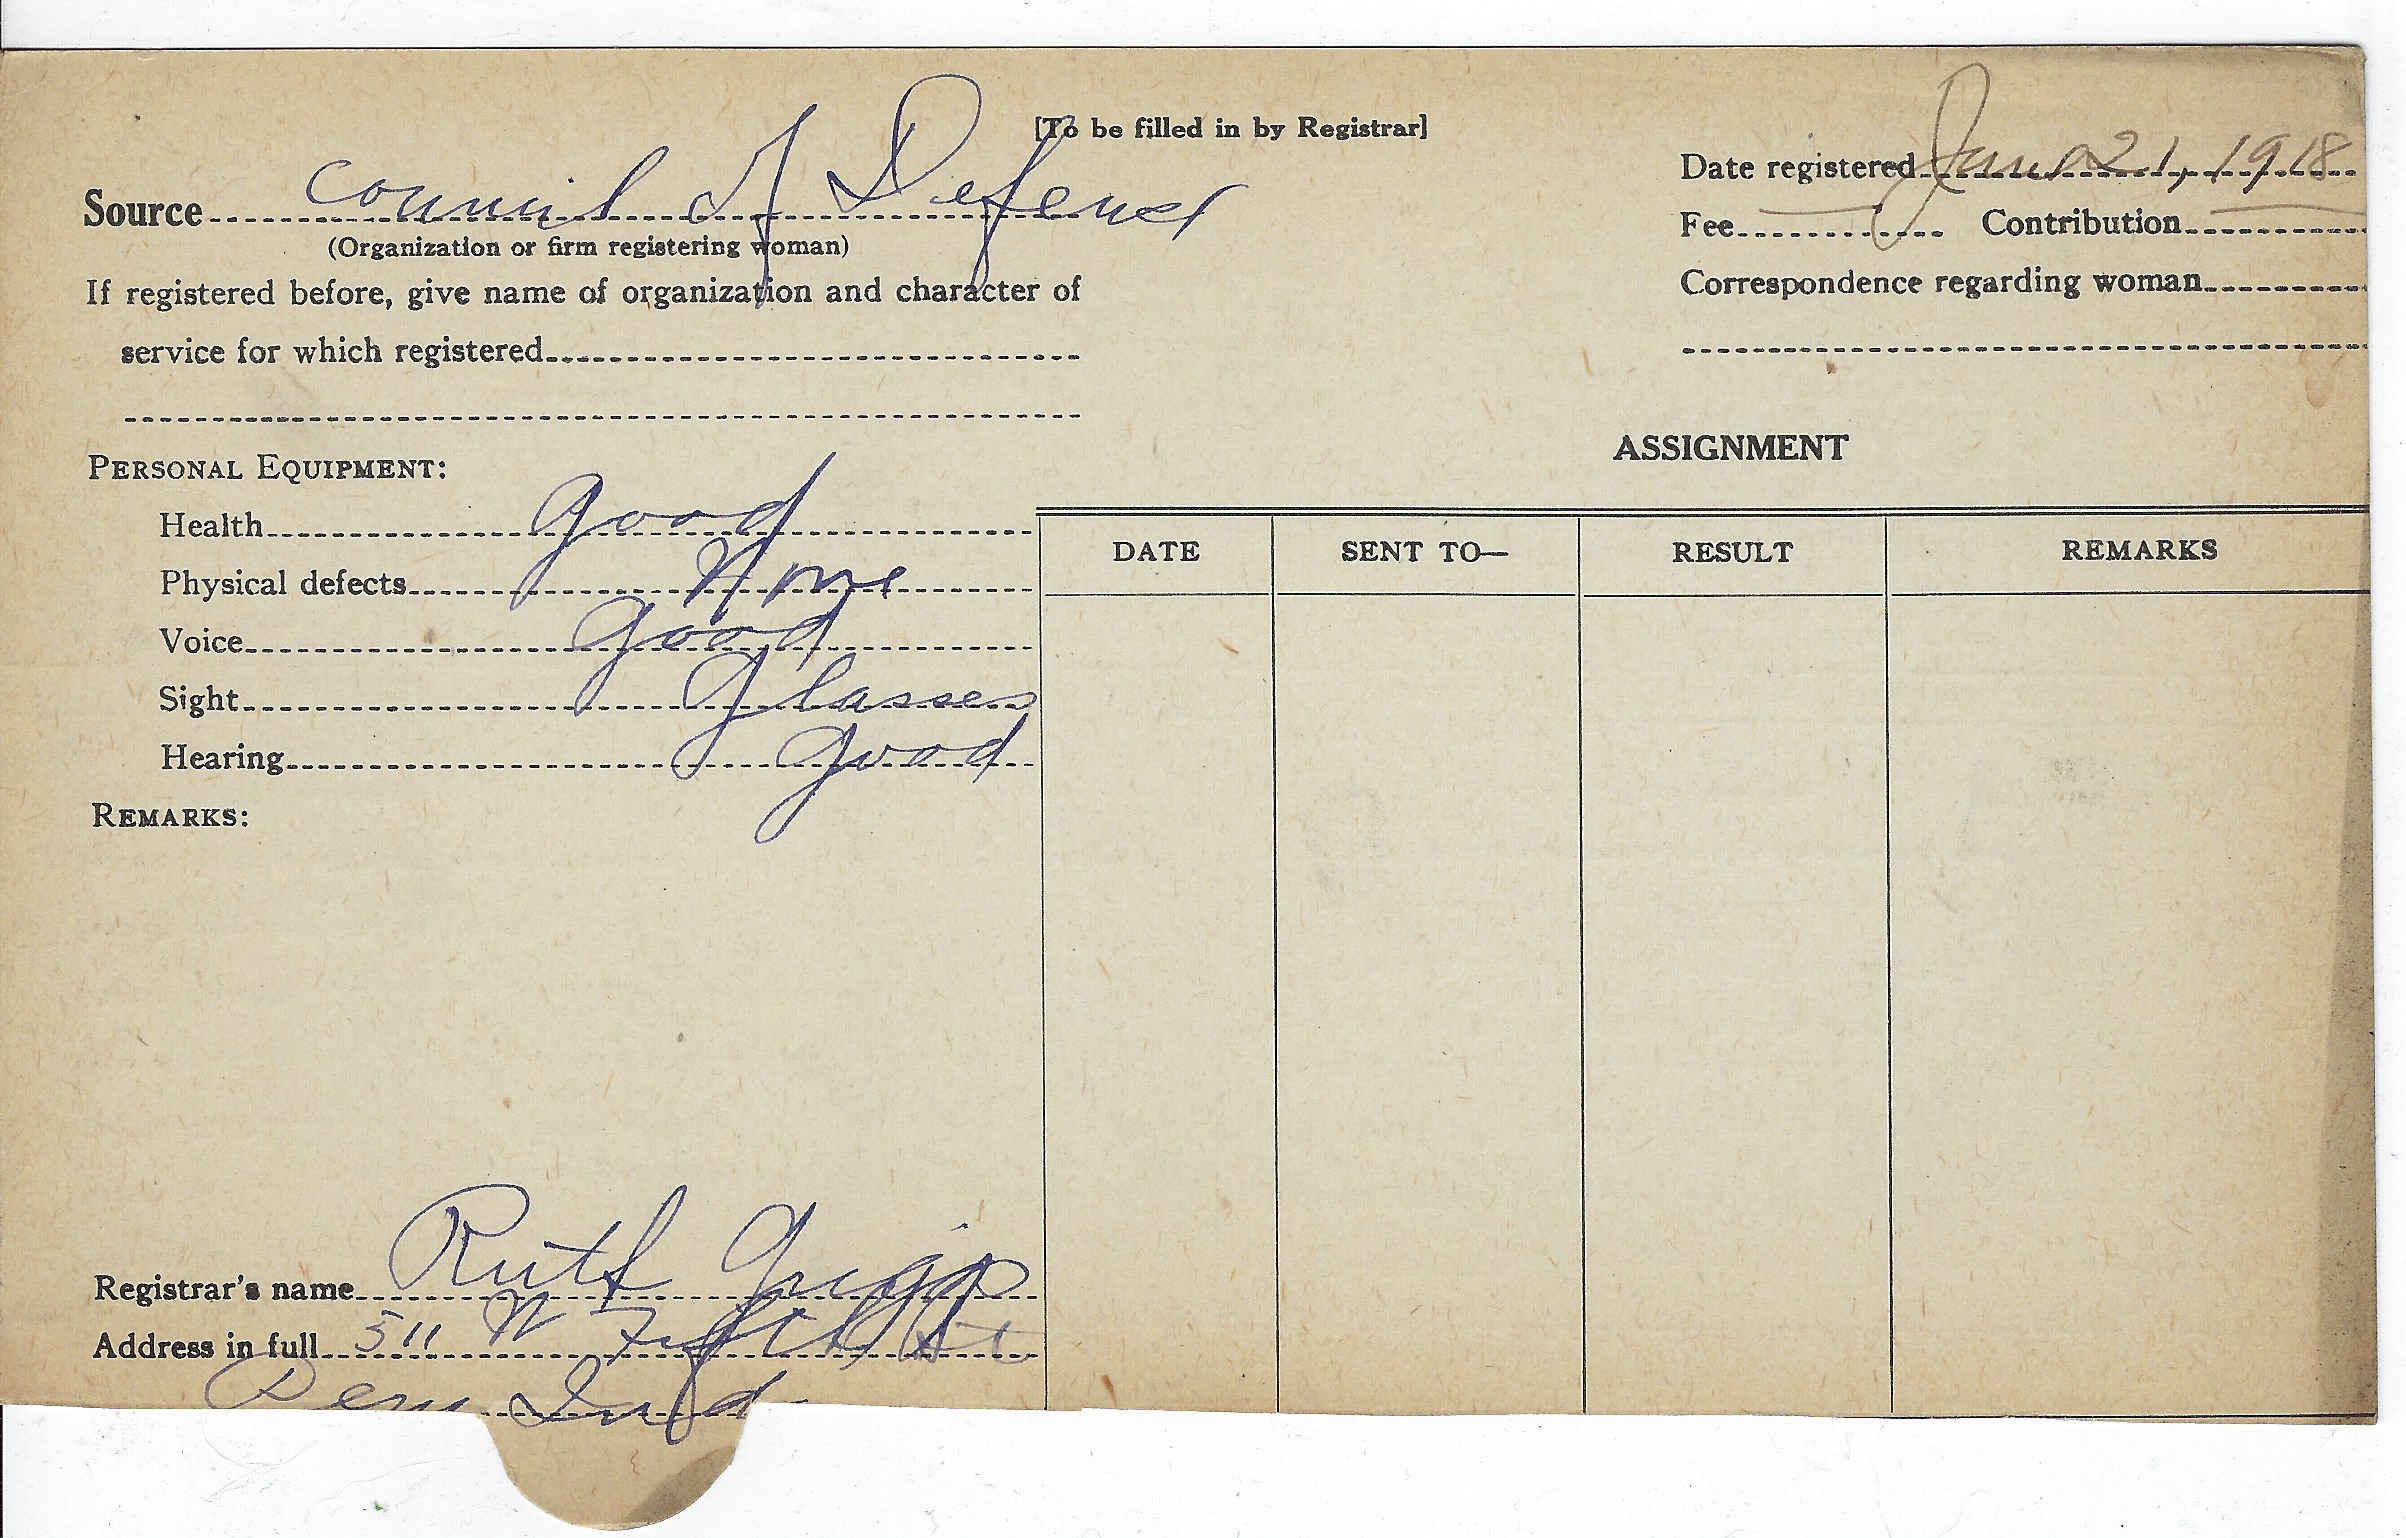 [To be filled in by Registrar]
Source Council of Defense
(Organization or firm registering woman)
If registered before, give name of organization and character of
service for which registered
PERSONAL EQUIPMENT:
Health good
Physical defects None
Voice good
Sight Glasses
Hearing good
REMARKS:
Registrar's name Ruth Griggs
Address in full 511 W Fifth St
Peru Ind
Date registered June 21, 1918
Fee Contribution
Correspondence regarding woman
ASSIGNMENT
DATE SENT TO— RESULT REMARKS